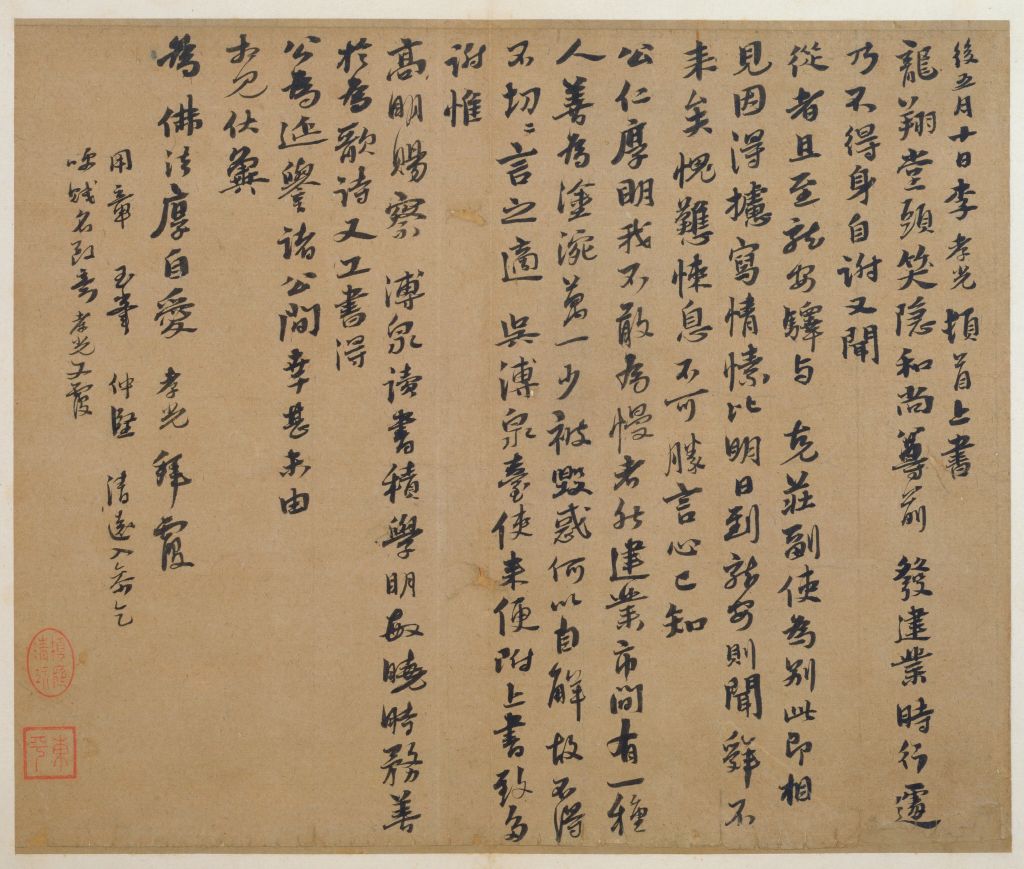 後五月十日李孝光頓首上書
龍翔堂頭笑隱和尚尊前 發建業時行遽
乃不得身自謝又聞
從者且至龍安驛与 克莊副使為別此即相
見因得攄寫情愫比明日到龍安則聞辭不
来矣愧戁悚息不可勝言心已知
公仁厚明我不敢為慢者然建業市間有一種
人善為塗涴萬一少被毀惑何以自解故不得
不切〻言之適 吳溥泉臺使来便附上書致多
謝惟
高明賜察 溥泉讀書積學明敏曉時務善
於為歌詩又工書得
公為延譽諸公間幸甚未由
相見伏冀
為 佛法厚自愛 孝光拜覆
用章 玉章 仲堅 清遠 孝光又覆